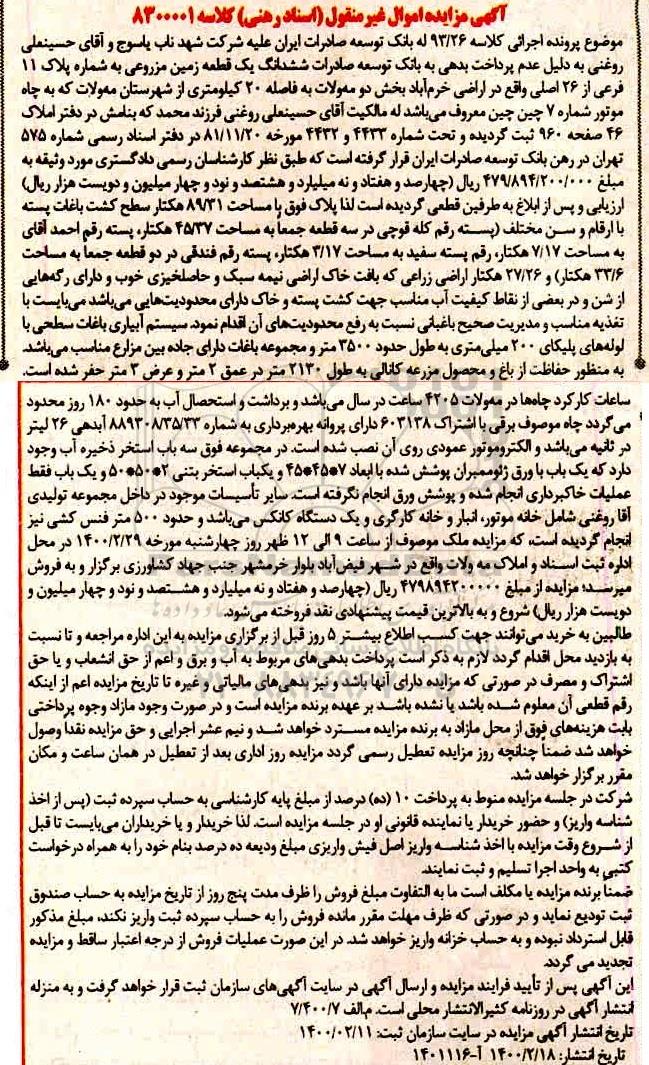 آگهی مزایده اموال غیر منقول (اسناد رهنی) کلاسه ۸۳۰۰۰۰۱
موضوع پرونده اجرائی کلاسه ۹۳/۲۶ له بانک توسعه صادرات ایران علیه شرکت شهد ناب یاسوج و آقای حسینعلی
روغنی به دلیل عدم پرداخت بدهی به بانک توسعه صادرات ششدانگ یک قطعه زمین مزروعی به شماره پلاک ۱۱
فرعی از ۲۶ اصلی واقع در اراضی خرم‌آباد بخش دو مه‌ولات به فاصله ۲۰ کیلومتری از شهرستان مه‌ولات که به چاه
موتور شماره ۷ چین چین معروف می‌باشد له مالکیت آقای حسینعلی روغنی فرزند محمد که بنامش در دفتر املاک
۴۶ صفحه ۹۶۰ ثبت گردیده و تحت شماره ۴۴۳۳ و ۴۴۳۲ مورخه ۸۱/۱۱/۲۰ در دفتر اسناد رسمی شماره ۵۷۵
تهران در رهن بانک توسعه صادرات ایران قرار گرفته است که طبق نظر کارشناسان رسمی دادگستری مورد وثیقه به
مبلغ ۴۷۹/۸۹۴/۲۰۰/۰۰۰ ریال (چهارصد و هفتاد و نه میلیارد و هشتصد و نود و چهار میلیون و دویست هزار ریال)
ارزیابی و پس از ابلاغ به طرفین قطعی گردیده است لذا پلاک فوق با مساحت ۸۹/۳۱ هکتار سطح کشت باغات پسته
با ارقام و سن مختلف (پسته رقم کله قوچی در سه قطعه جمعاً به مساحت ۴۵/۳۷ هکتار، پسته رقم احمد آقای
به مساحت ۷/۱۷ هکتار، رقم پسته سفید به مساحت ۳/۱۷ هکتار، پسته رقم فندقی در دو قطعه جمعا به مساحت
۳۳/۶ هکتار) و ۲۷/۲۶ هکتار اراضی زراعی که بافت خاک اراضی نیمه سبک و حاصلخیزی خوب و دارای رگه‌هایی
از شن و در بعضی از نقاط کیفیت آب مناسب جهت کشت پسته و خاک دارای محدودیت‌هایی می‌باشد می‌بایست با
تغذیه مناسب و مدیریت صحیح باغبانی نسبت به رفع محدودیت‌های آن اقدام نمود. سیستم آبیاری باغات سطحی با
لوله‌های پلیکای ۲۰۰ میلی‌متری به طول حدود ۳۵۰۰ متر و مجموعه باغات دارای جاده بین مزارع مناسب می‌باشد.
به منظور حفاظت از باغ و محصول مزرعه کانالی به طول ۲۱۳۰ متر در عمق ۲ متر و عرض ۳ متر حفر شده است.
ساعات کارکرد چاه‌ها در مه‌ولات ۴۲۰۵ ساعت در سال می‌باشد و برداشت و استحصال آب به حدود ۱۸۰ روز محدود
می‌گردد چاه موصوف برقی با اشتراک ۶۰۳۱۳۸ دارای پروانه بهره‌برداری به شماره ۸۸۹۳۰۸/۳۵/۳۳ آبدهی ۲۶ لیتر
در ثانیه می‌باشد و الکتروموتور عمودی روی آن نصب شده است. در مجموعه فوق سه باب استخر ذخیره آب وجود
دارد که یک باب با ورق ژئوممبران پوشش شده با ابعاد ۷*۴۵*۴۵ و یکباب استخر بتنی ۲*۵۰*۵۰ و یک باب فقط
عملیات خاکبرداری انجام شده و پوشش ورق انجام نگرفته است. سایر تأسیسات موجود در داخل مجموعه تولیدی
آقا روغنی شامل خانه موتور، انبار و خانه کارگری و یک دستگاه کانکس می‌باشد و حدود ۵۰۰ متر فنس کشی نیز
انجام گردیده است، که مزایده ملک موصوف از ساعت ۹ الی ۱۲ ظهر روز چهارشنبه مورخه ۱۴۰۰/۲/۲۹ در محل
اداره ثبت اسناد و املاک مه ولات واقع در شهر فیض‌آباد بلوار خرمشهر جنب جهاد کشاورزی برگزار و به فروش
میرسد؛ مزایده از مبلغ ۴۷۹۸۹۴۲۰۰۰۰۰ ریال (چهارصد و هفتاد و نه میلیارد و هشتصد و نود و چهار میلیون و
دویست هزار ریال) شروع و به بالاترین قیمت پیشنهادی نقد فروخته می‌شود.
طالبین به خرید می‌توانند جهت کسب اطلاع بیشتر ۵ روز قبل از برگزاری مزایده به این اداره مراجعه و تا نسبت
به بازدید محل اقدام گردد لازم به ذکر است پرداخت بدهی‌های مربوط به آب و برق و اعم از حق انشعاب و یا حق
اشتراک و مصرف در صورتی که مزایده دارای آنها باشد و نیز بدهی‌های مالیاتی و غیره تا تاریخ مزایده اعم از اینکه
رقم قطعی آن معلوم شده باشد یا نشده باشد بر عهده برنده مزایده است و در صورت وجود مازاد وجوه پرداختی
بابت هزینه‌های فوق از محل مازاد به برنده مزایده مسترد خواهد شد و نیم عشر اجرایی و حق مزایده نقداً وصول
خواهد شد ضمناً چنانچه روز مزایده تعطیل رسمی گردد مزایده روز اداری بعد از تعطیل در همان ساعت و مکان
مقرر برگزار خواهد شد.
شرکت در جلسه مزایده منوط به پرداخت ۱۰ (ده) درصد از مبلغ پایه کارشناسی به حساب سپرده ثبت (پس از اخذ
شناسه واریز) و حضور خریدار یا نماینده قانونی او در جلسه مزایده است. لذا خریدار و یا خریداران می‌بایست تا قبل
از شروع وقت مزایده با اخذ شناسه واریز اصل فیش واریزی مبلغ ودیعه ده درصد بنام خود را به همراه درخواست
کتبی به واحد اجرا تسلیم و ثبت نمایند.
ضمنا برنده مزایده یا مکلف است ما به التفاوت مبلغ فروش را ظرف مدت پنج روز از تاریخ مزایده به حساب صندوق
ثبت تودیع نماید و در صورتی که ظرف مهلت مقرر مانده فروش را به حساب سپرده ثبت واریز نکند، مبلغ مذکور
قابل استرداد نبوده و به حساب خزانه واریز خواهد شد. در این صورت عملیات فروش از درجه اعتبار ساقط و مزایده
تجدید می گردد.
این آگهی پس از تأیید فرایند مزایده و ارسال آگهی در سایت آگهی‌های سازمان ثبت قرار خواهد گرفت و به منزله
انتشار آگهی در روزنامه کثیرالانتشار محلی است. م‌الف ۷/۴۰۰/۷
تاریخ انتشار آگهی مزایده در سایت سازمان ثبت: ۱۴۰۰/۰۲/۱۱
تاریخ انتشار: ۱۴۰۰/۲/۱۸ آ-۱۴۰۱۱۱۶